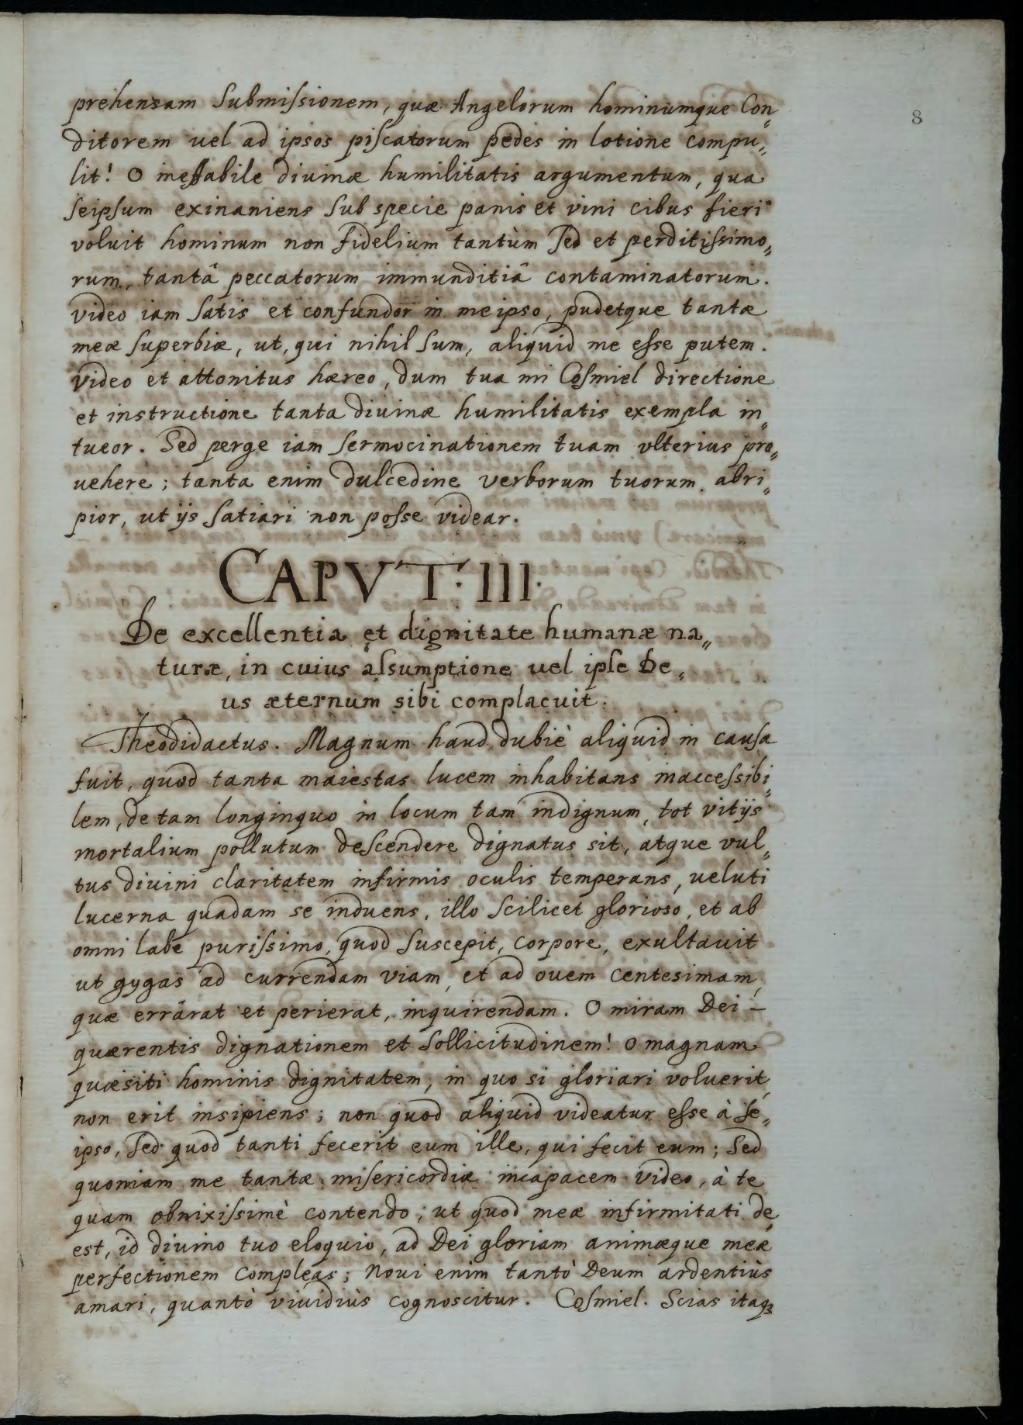 8
prehensam submissionem, quæ Angelorum hominumque Con„
ditorem uel ad ipsos piscatorum pedes in lotione compu„
lit! O ineffabile diuinæ humilitatis argumentum, qua
seipsum exinaniens sub specie panis et vini cibus fieri
voluit hominum non Fidelium tantùm sed et perditissimo„
rum, tantâ peccatorum immunditiâ contaminatorum.
video iam satis et confundor in meipso, pudetque tantæ
meæ superbiæ, ut, qui nihil sum, aliquid me esse putem.
Video et attonitus hæreo, dum tua mi Cosmiel directione
et instructione tanta diuinæ humilitatis exempla in„
tueor. Sed perge iam sermocinationem tuam vlterius pro„
uehere; tanta enim dulcedine verborum tuorum abri„
pior, ut ijs satiari non posse videar.
CAPVT. III.
De excellentia et dignitate humanæ na„
turæ, in cuius assumptione uel ipse De„
us æternum sibi complacuit.
Theodidactus. Magnum haud dubiè aliquid in causa
fuit, quod tanta maiestas lucem inhabitans inaccessibi„
lem, de tam longinquo in locum tam indignum, tot vitijs
mortalium pollutum descendere dignatus sit, atque vul„
tus diuini claritatem infirmis oculis temperans, ueluti
lucerna quadam se induens, illo scilicet glorioso, et ab
omni labe purissimo, quod suscepit, corpore, exultauit
ut gygas ad currendam viam, et ad ouem centesimam,
quæ errârat et perierat, inquirendam. O miram Dei –
quærentis dignationem et sollicitudinem! o magnam
quæsiti hominis dignitatem, in quo si gloriari voluerit,
non erit insipiens; non quod aliquid videatur esse à se„
ipso, sed quod tanti fecerit eum ille, qui fecit eum; Sed
quoniam me tantæ misericordiæ incapacem video, à te
quam obnixissimè contendo, ut quod meæ infirmitati de„
est, id diuino tuo eloquio, ad Dei gloriam animæque meæ
perfectionem compleas; Noui enim tantò Deum ardentiùs
amari, quantò viuidiùs cognoscitur. Cosmiel. Scias itaq3